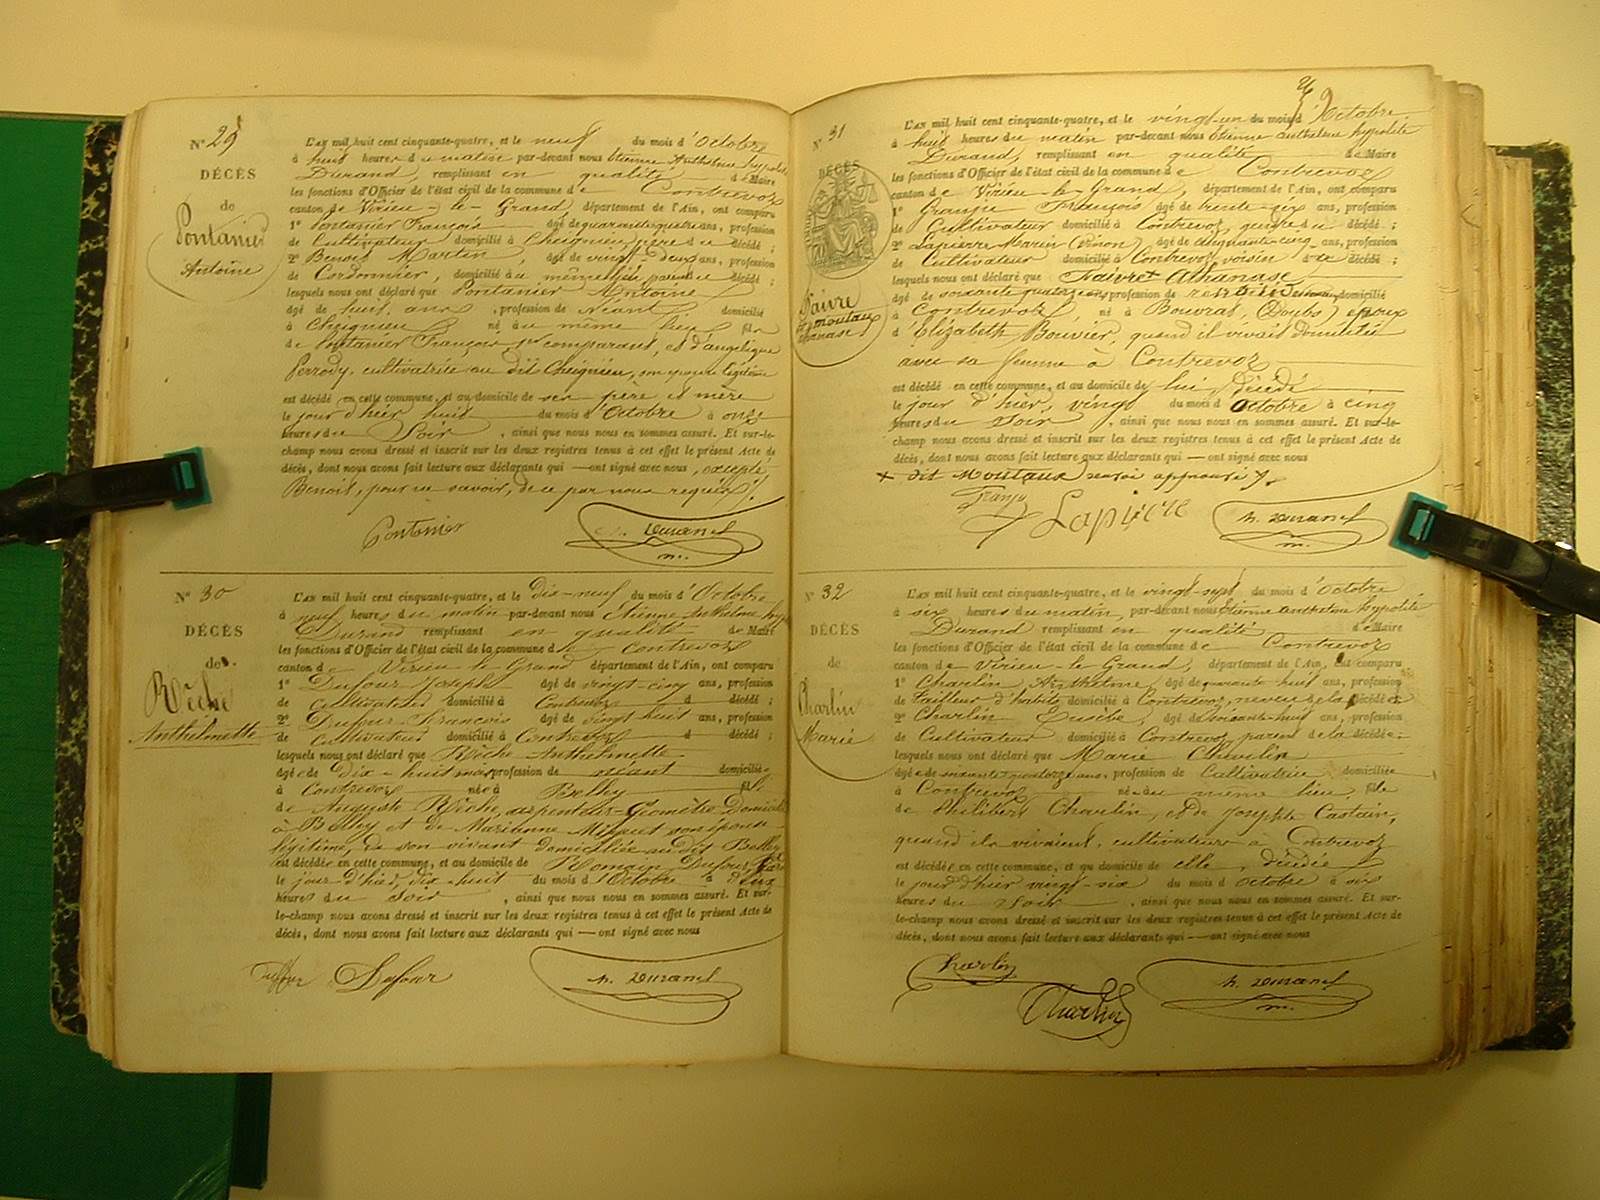 N° 29
DÉCÈS
de
Pontanier
Antoine
L'AN mil huit cent cinquante-quatre, et le neuf du mois d'Octobre
à huit heures du matin par-devant nous Etienne Anthelme hypolite
Durand, remplissant en qualité de Maire
les fonctions d'Officier de l'état civil de la commune de Contrevoz
canton de Virieu-le-Grand, département de l'Ain, ont comparu
1° Pontanier François âgé de quarante quatre ans, profession
de Cultivateur domicilié à Cheignieu, père du décédé ;
2° Benoit Martin, âgé de vingt deux ans, profession
de Cordonnier, domicilié au même lieu, du décédé ;
lesquels nous ont déclaré que Pontanier Antoine
âgé de huit ans, profession de Néant domicilié
à Cheignieu né au même lieu fils
de Pontanier François, 1er comparant, et d'angélique
Perrody, cultivatrice au dit Cheignieu, son épouse légitime
est décédé en cette commune, et au domicile de ses père et mère
le jour d'hier huit du mois d'Octobre à onze
heures du Soir, ainsi que nous nous en sommes assuré. Et sur-le-
champ nous avons dressé et inscrit sur les deux registres tenus à cet effet le présent Acte de
décès, dont nous avons fait lecture aux déclarants qui — ont signé avec nous, excepté
Benoit, pour ne savoir, de ce par nous requis.
Pontanier
h. Durand
m.
N° 30
DÉCÈS
de
Rôche
Anthelmette
L'AN mil huit cent cinquante-quatre, et le dix-neuf du mois d'Octobre
à neuf heures du matin par-devant nous Etienne Anthelme hyp
Durand remplissant en qualité de Maire
les fonctions d'Officier de l'état civil de la commune de Contrevoz
canton de Virieu le Grand département de l'Ain, ont comparu
1° Dufour Joseph âgé de vingt-cinq ans, profession
de cultivateur domicilié à Contrevoz d décédé ;
2° Dufour François âgé de vingt huit ans, profession
de Cultivateur domicilié à Contrevoz d décédé ;
lesquels nous ont déclaré que Rôche Anthelmette
âgée de Dix-huit mois profession de néant domiciliée
à Contrevoz née à Belley fille
de Auguste Rôche, arpenteur-Géomètre Domicilié
à Belley et de Marianne son épouse
légitime, de son vivant domiciliée au dit Belley
est décédée en cette commune, et au domicile de Romain Dufour,
le jour d'hier, dix-huit du mois d'Octobre à deux
heures du soir, ainsi que nous nous en sommes assuré. Et sur-
le-champ nous avons dressé et inscrit sur les deux registres tenus à cet effet le présent Acte de
décès, dont nous avons fait lecture aux déclarants qui — ont signé avec nous
Dufour Dufour
h. Durand
N° 31
DÉCÈS
Faivre
dit moutaux
athanase
L'AN mil huit cent cinquante-quatre, et le vingt-un du mois d'Octobre
à huit heures du matin par-devant nous Etienne anthelme hypolite
Durand, remplissant en qualité de Maire
les fonctions d'Officier de l'état civil de la commune de Contrevoz
canton de Virieu-le-Grand, département de l'Ain, ont comparu
1° Granju François âgé de trente-six ans, profession
de Cultivateur domicilié à Contrevoz, gendre du décédé ;
2° Lapierre Marin âgé de cinquante-cinq ans, profession
de Cultivateur domicilié à Contrevoz, voisin du décédé ;
lesquels nous ont déclaré que Faivre + Athanase
âgé de soixante quatorze ans, profession de domicilié
à Contrevoz, né à (Doubs) époux
d'Elizabeth Bouvier, quand il vivait domicilié
avec sa femme à Contrevoz
est décédé en cette commune, et au domicile de lui Décédé
le jour d'hier, vingt du mois d'Octobre à cinq
heures du soir, ainsi que nous nous en sommes assuré. Et sur-le-
champ nous avons dressé et inscrit sur les deux registres tenus à cet effet le présent Acte de
décès, dont nous avons fait lecture aux déclarants qui — ont signé avec nous
+ dit Moutaux renvoi approuvé
Granju
Lapierre
h. Durand
m.
N° 32
DÉCÈS
de
Charlin
Marie
L'AN mil huit cent cinquante-quatre, et le vingt-sept du mois d'Octobre
à six heures du matin, par-devant nous Etienne anthelme hypolite
Durand remplissant en qualité de Maire
les fonctions d'Officier de l'état civil de la commune de Contrevoz
canton de Virieu-le-Grand, département de l'Ain, ont comparu
1° Charlin Anthelme, âgé de quarante huit ans, profession
de tailleur d'habits domicilié à Contrevoz, neveu de la décédée
2° Charlin Eusèbe, âgé de soixante-huit ans, profession
de Cultivateur domicilié à Contrevoz, parent de la décédée ;
lesquels nous ont déclaré que Marie Charlin
âgée de soixante quatorze ans, profession de Cultivatrice domiciliée
à Contrevoz née au même lieu, fille
de Philibert Charlin, et de Josephte Castain,
quand ils vivaient, cultivateurs à Contrevoz
est décédée en cette commune, et au domicile de elle, décédée
le jour d'hier vingt-six du mois d'octobre à six
heures du Soir, ainsi que nous nous en sommes assuré. Et sur-
le-champ nous avons dressé et inscrit sur les deux registres tenus à cet effet le présent Acte de
décès, dont nous avons fait lecture aux déclarants qui — ont signé avec nous
Charlin
Charlin
h. Durand
m.